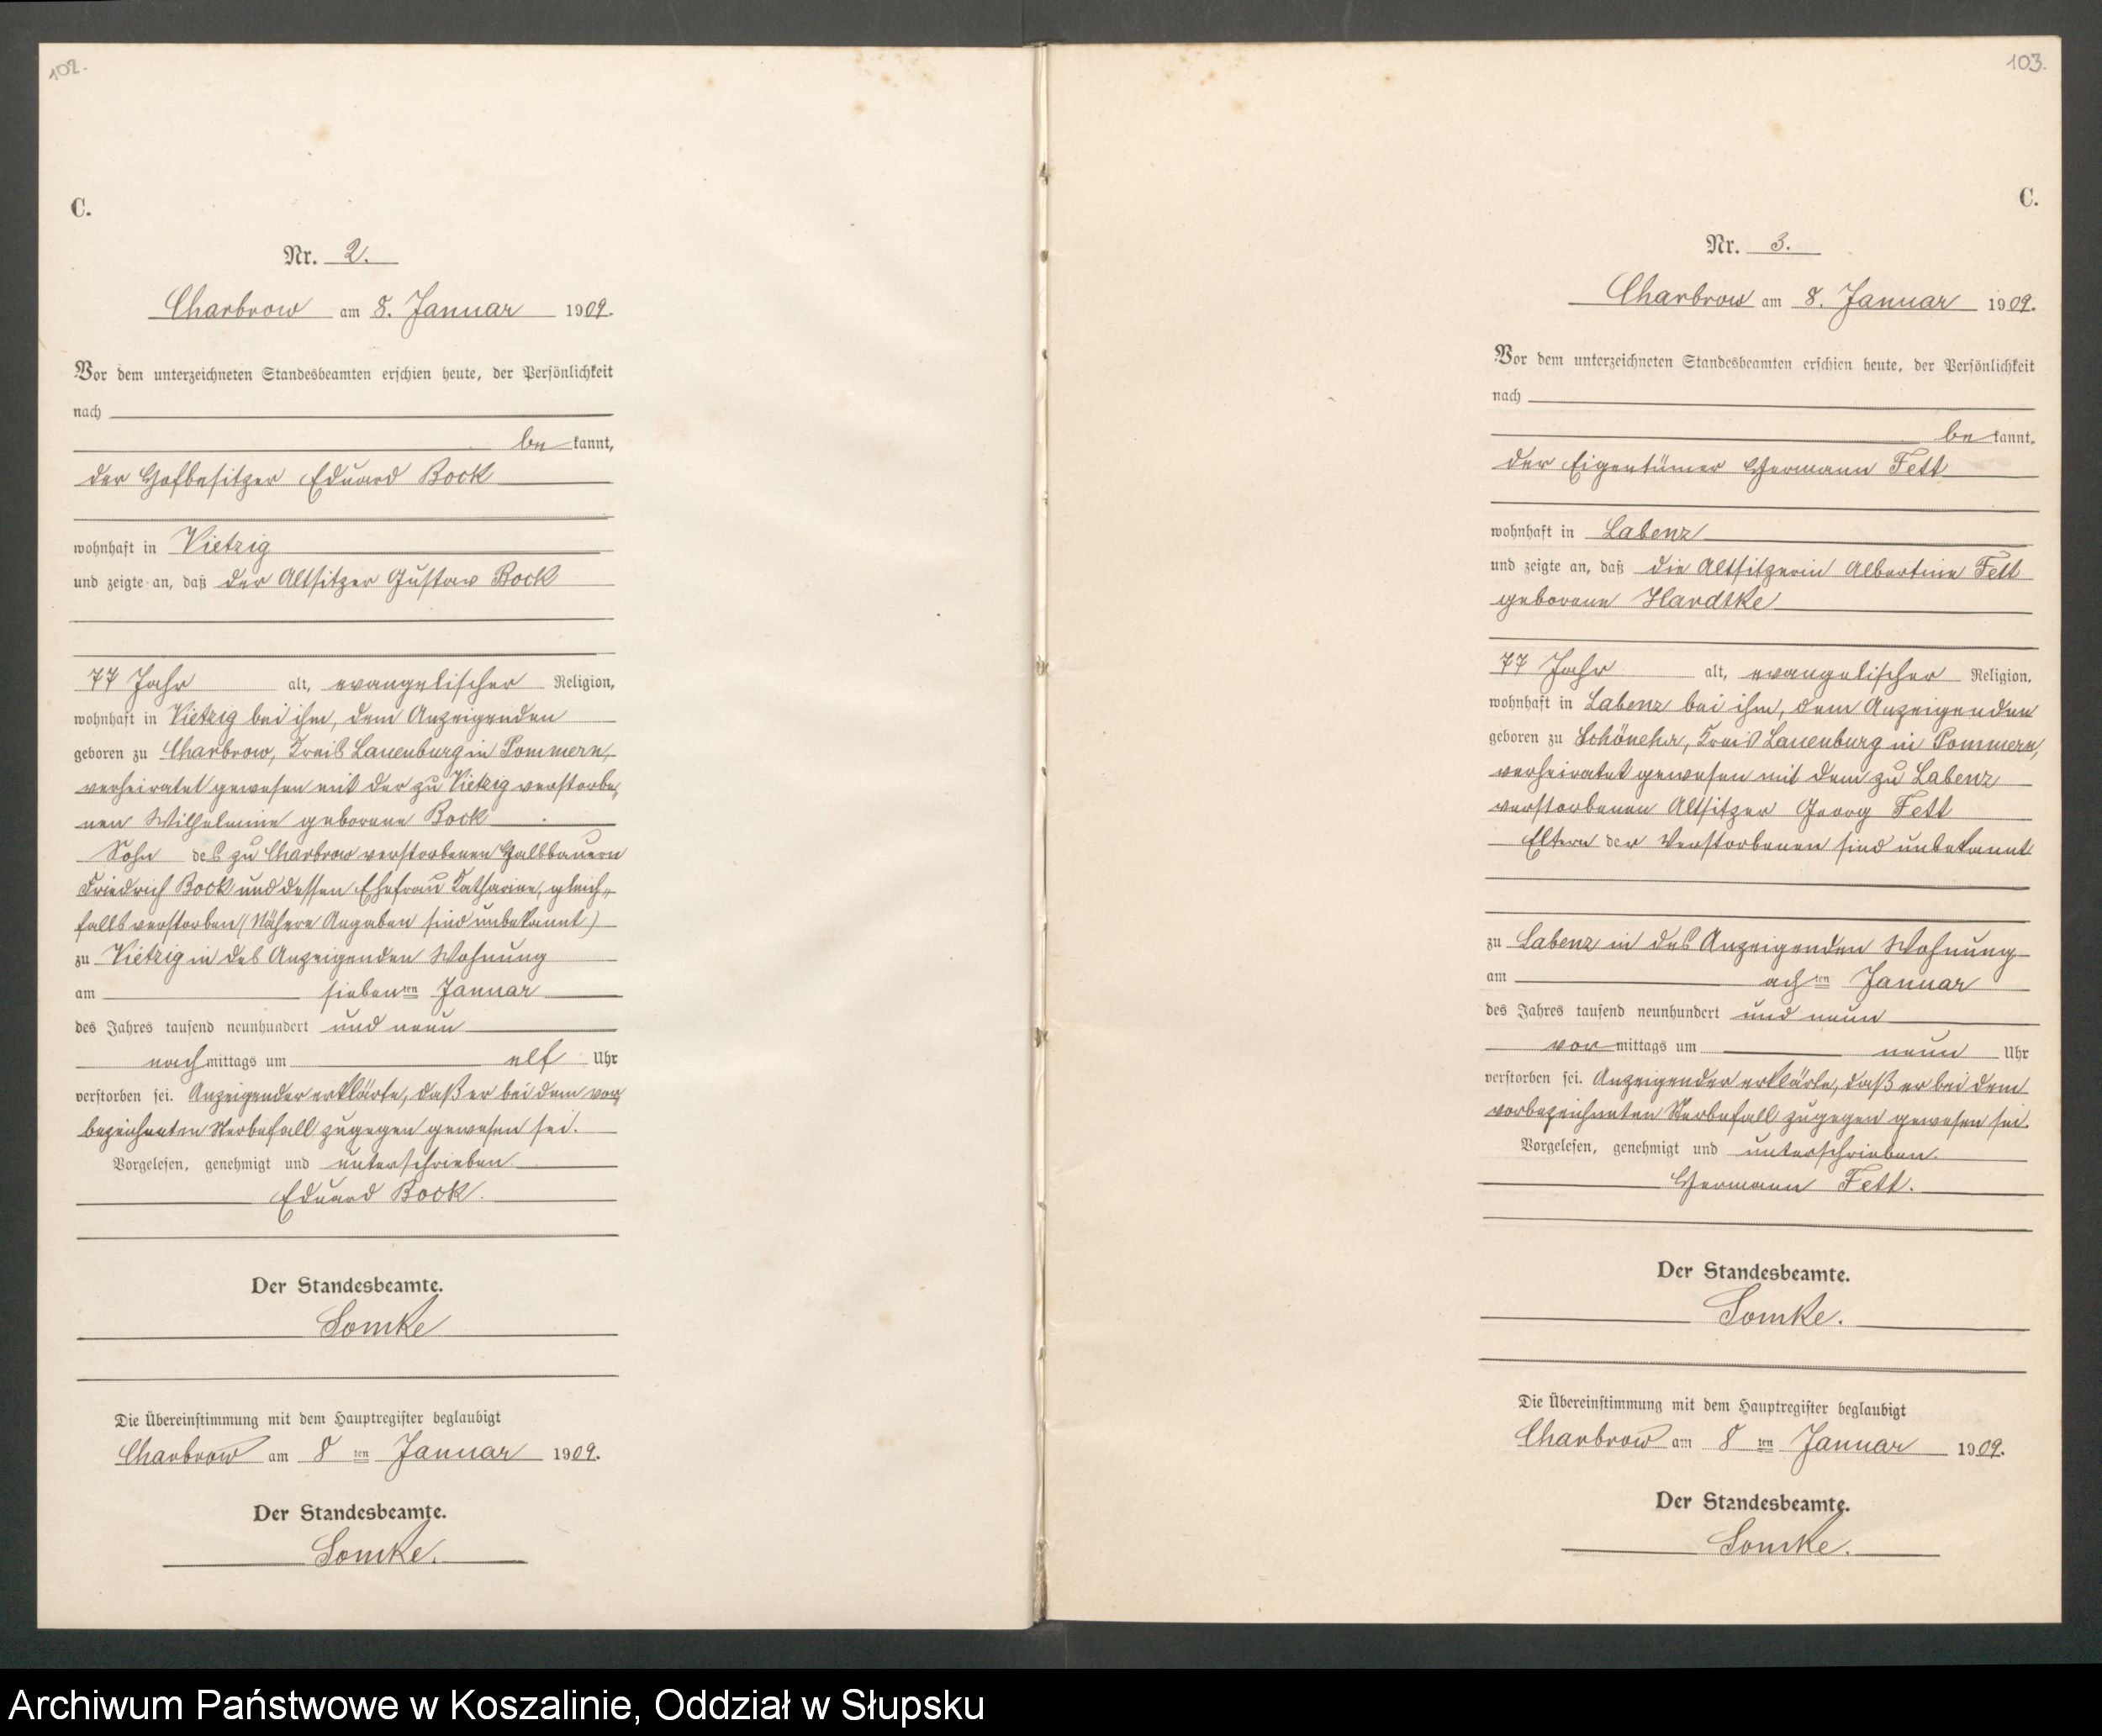 102.
C.
Nr. 2.
Charbrow am 8. Januar 1909.
Vor dem unterzeichneten Standesbeamten erschien heute, der Persönlichkeit
nach
be kannt,
der Hofbesitzer Eduard Bock
wohnhaft in Vietzig
und zeigte an, daß der Altsitzer Gustav Bock
77 Jahr alt, evangelischer Religion,
wohnhaft in Vietzig bei ihm, dem Anzeigenden
geboren zu Charbrow, Kreis Lauenburg in Pommern,
verheiratet gewesen mit der zu Vietzig verstorbe„
nen Wilhelmine geborene Bock
Sohn des zu Charbrow verstorbenen Halbbauern
Friedrich Bock und dessen Ehefrau Katharine, gleich„
falls verstorben (Nähere Angaben sind unbekannt)
zu Vietzig in des Anzeigenden Wohnung
am sieben ten Januar
des Jahres tausend neunhundert und neun
nach mittags um elf Uhr
verstorben sei. Anzeigender erklärte, daß er bei dem vor„
bezeichneten Sterbefall zugegen gewesen sei.
Vorgelesen, genehmigt und unterschrieben.
Eduard Bock.
Der Standesbeamte.
Somke
Die Übereinstimmung mit dem Hauptregister beglaubigt
Charbrow am 8 ten Januar 1909.
Der Standesbeamte.
Somke.
103.
C.
Nr. 3.
Charbrow am 8. Januar 1909.
Vor dem unterzeichneten Standesbeamten erschien heute, der Persönlichkeit
nach
be kannt,
der Eigentümer Hermann Fett
wohnhaft in Labenz
und zeigte an, daß die Altsitzerin Albertine Fett
geborene Hardtke
77 Jahr alt, evangelischer Religion,
wohnhaft in Labenz bei ihm, dem Anzeigenden
geboren zu Schönehr, Kreis Lauenburg in Pommern,
verheiratet gewesen mit dem zu Labenz
verstorbenen Altsitzer Georg Fett
Eltern der Verstorbenen sind unbekannt
zu Labenz in des Anzeigenden Wohnung
am ach ten Januar
des Jahres tausend neunhundert und neun
vor mittags um neun Uhr
verstorben sei. Anzeigender erklärte, daß er bei dem
vorbezeichneten Sterbefall zugegen gewesen sei.
Vorgelesen, genehmigt und unterschrieben.
Hermann Fett.
Der Standesbeamte.
Somke.
Die Übereinstimmung mit dem Hauptregister beglaubigt
Charbrow am 8 ten Januar 1909.
Der Standesbeamte.
Somke.
Archiwum Państwowe w Koszalinie, Oddział w Słupsku